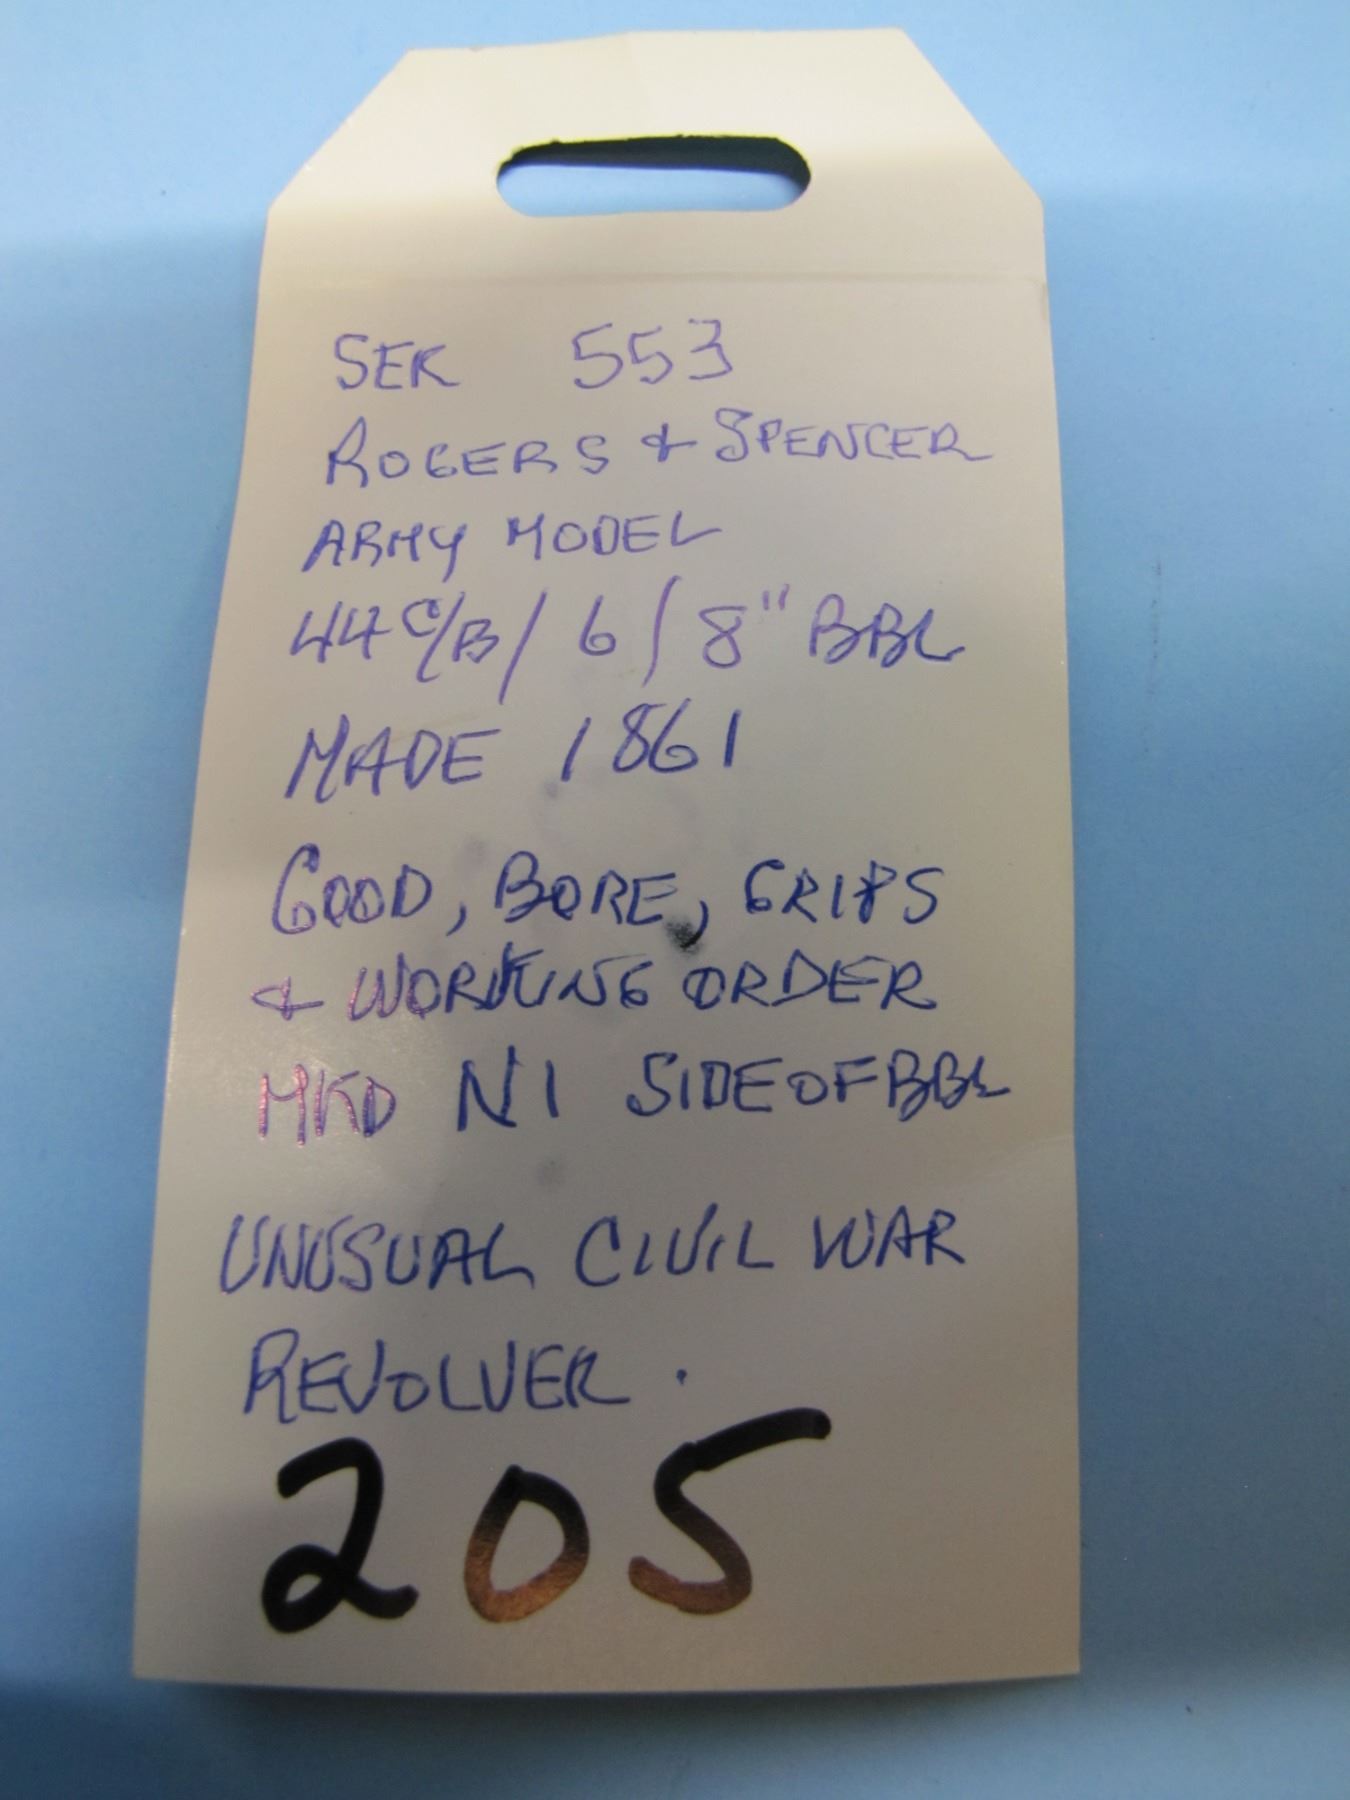 SER 553
ROGERS & SPENCER
ARMY MODEL
44 C/B / 6 / 8" BBL
MADE 1861
GOOD, BORE, GRIPS
& WORKING ORDER
MKD N1 SIDE OF BBL
UNUSUAL CIVIL WAR
REVOLVER.
205